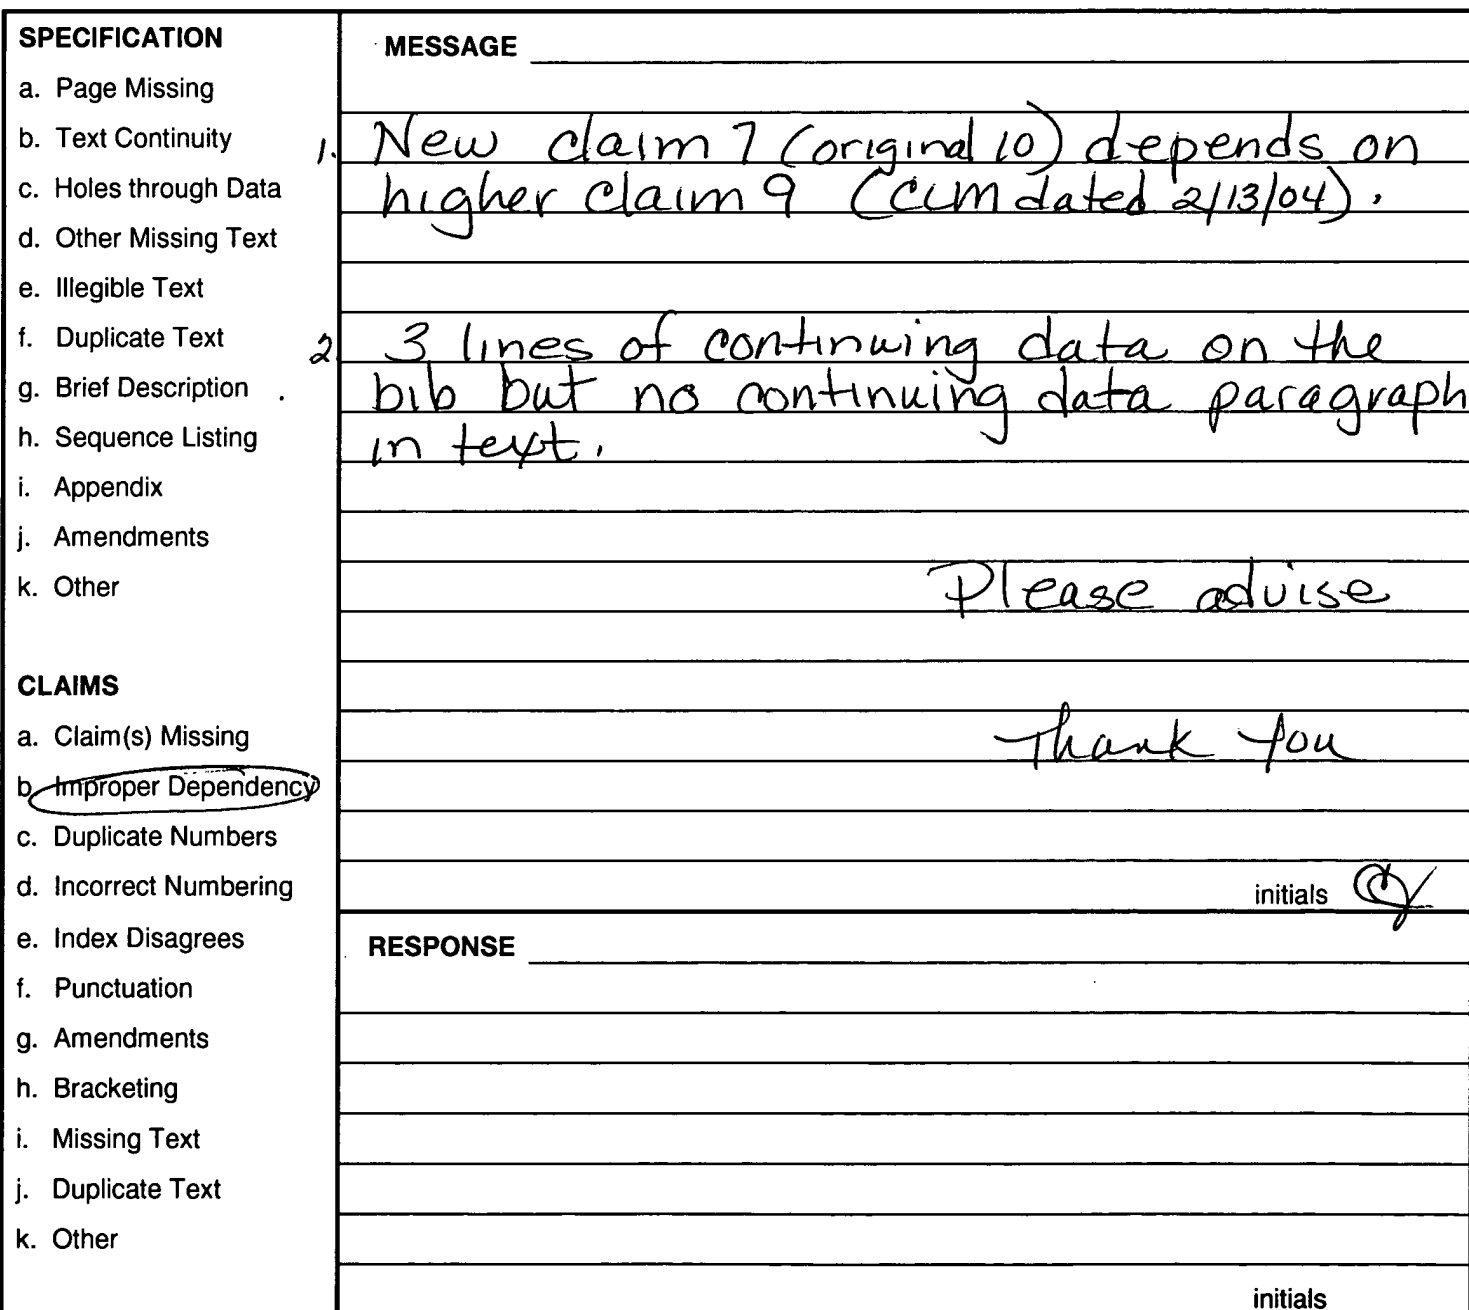 SPECIFICATION
a. Page Missing
b. Text Continuity
c. Holes through Data
d. Other Missing Text
e. Illegible Text
f. Duplicate Text
g. Brief Description
h. Sequence Listing
i. Appendix
j. Amendments
k. Other
CLAIMS
a. Claim(s) Missing
b. Improper Dependency
c. Duplicate Numbers
d. Incorrect Numbering
e. Index Disagrees
f. Punctuation
g. Amendments
h. Bracketing
i. Missing Text
j. Duplicate Text
k. Other
MESSAGE
1. New claim 7 (original 10) depends on
higher claim 9 (CLM dated 2/13/04).
2. 3 lines of continuing data on the
bib but no continuing data paragraph
in text.
Please advise
Thank You
initials
RESPONSE
initials